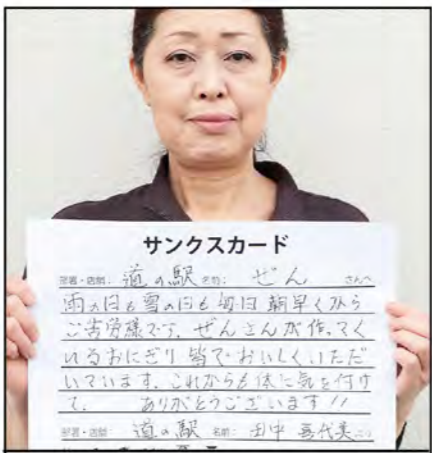 サンクスカード
部署・店舗： 道の駅 名前： ぜん さんへ
雨の日も雪の日も毎日朝早くから
ご苦労様です。ぜんさんが作ってく
れるおにぎり皆でおいしくいただ
いています。これからも体に気を付け
て、 ありがとうございます!!
部署・店舗 道の駅 名前： 田中 喜代美 より